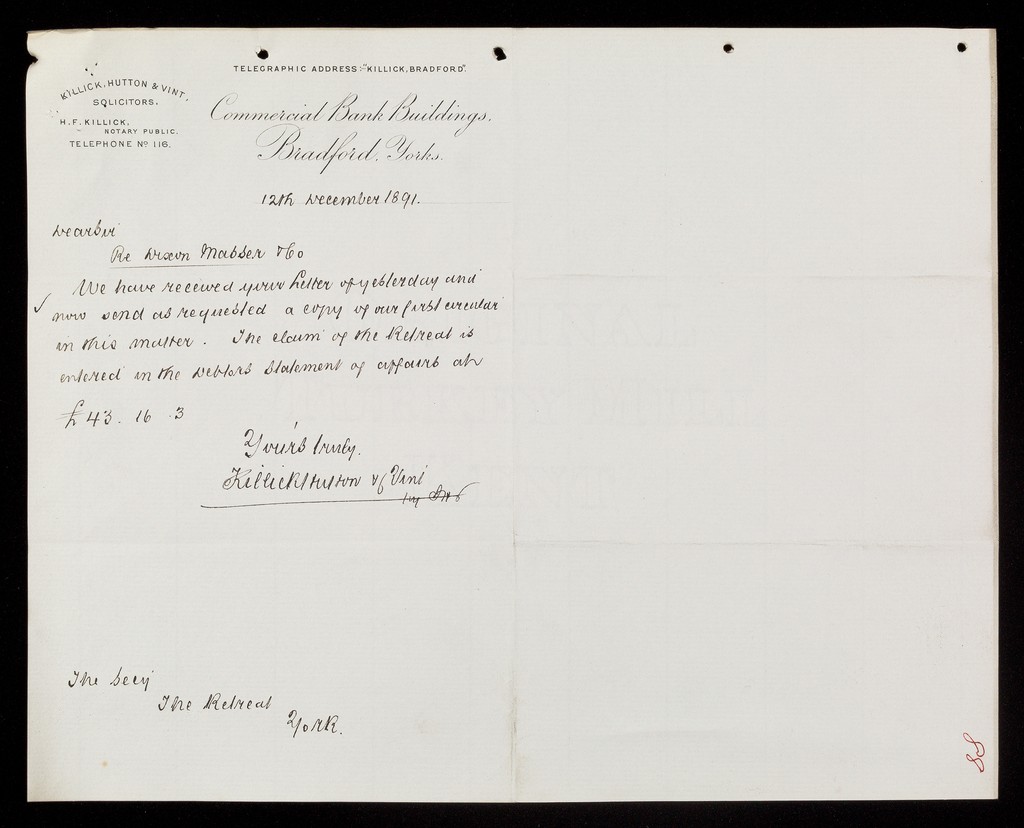 TELEGRAPHIC ADDRESS:-"KILLICK, BRADFORD".
KILLICK, HUTTON & VINT,
SOLICITORS.
H. F. KILLICK,
NOTARY PUBLIC.
TELEPHONE No 116.
Commercial Bank Buildings,
Bradford, Yorks.
12th December 1891.
Dear Sir
Re Dixon Mabber & Co
We have received your letter of yesterday and
now send as requested a copy of our first circular
in this matter. The claim of the Retreat is
entered in the Debtors Statement of affairs at
£43. 16. 3
Yours truly.
Killick Hutton & Vint
by
The Secy
The Retreat
York.
88